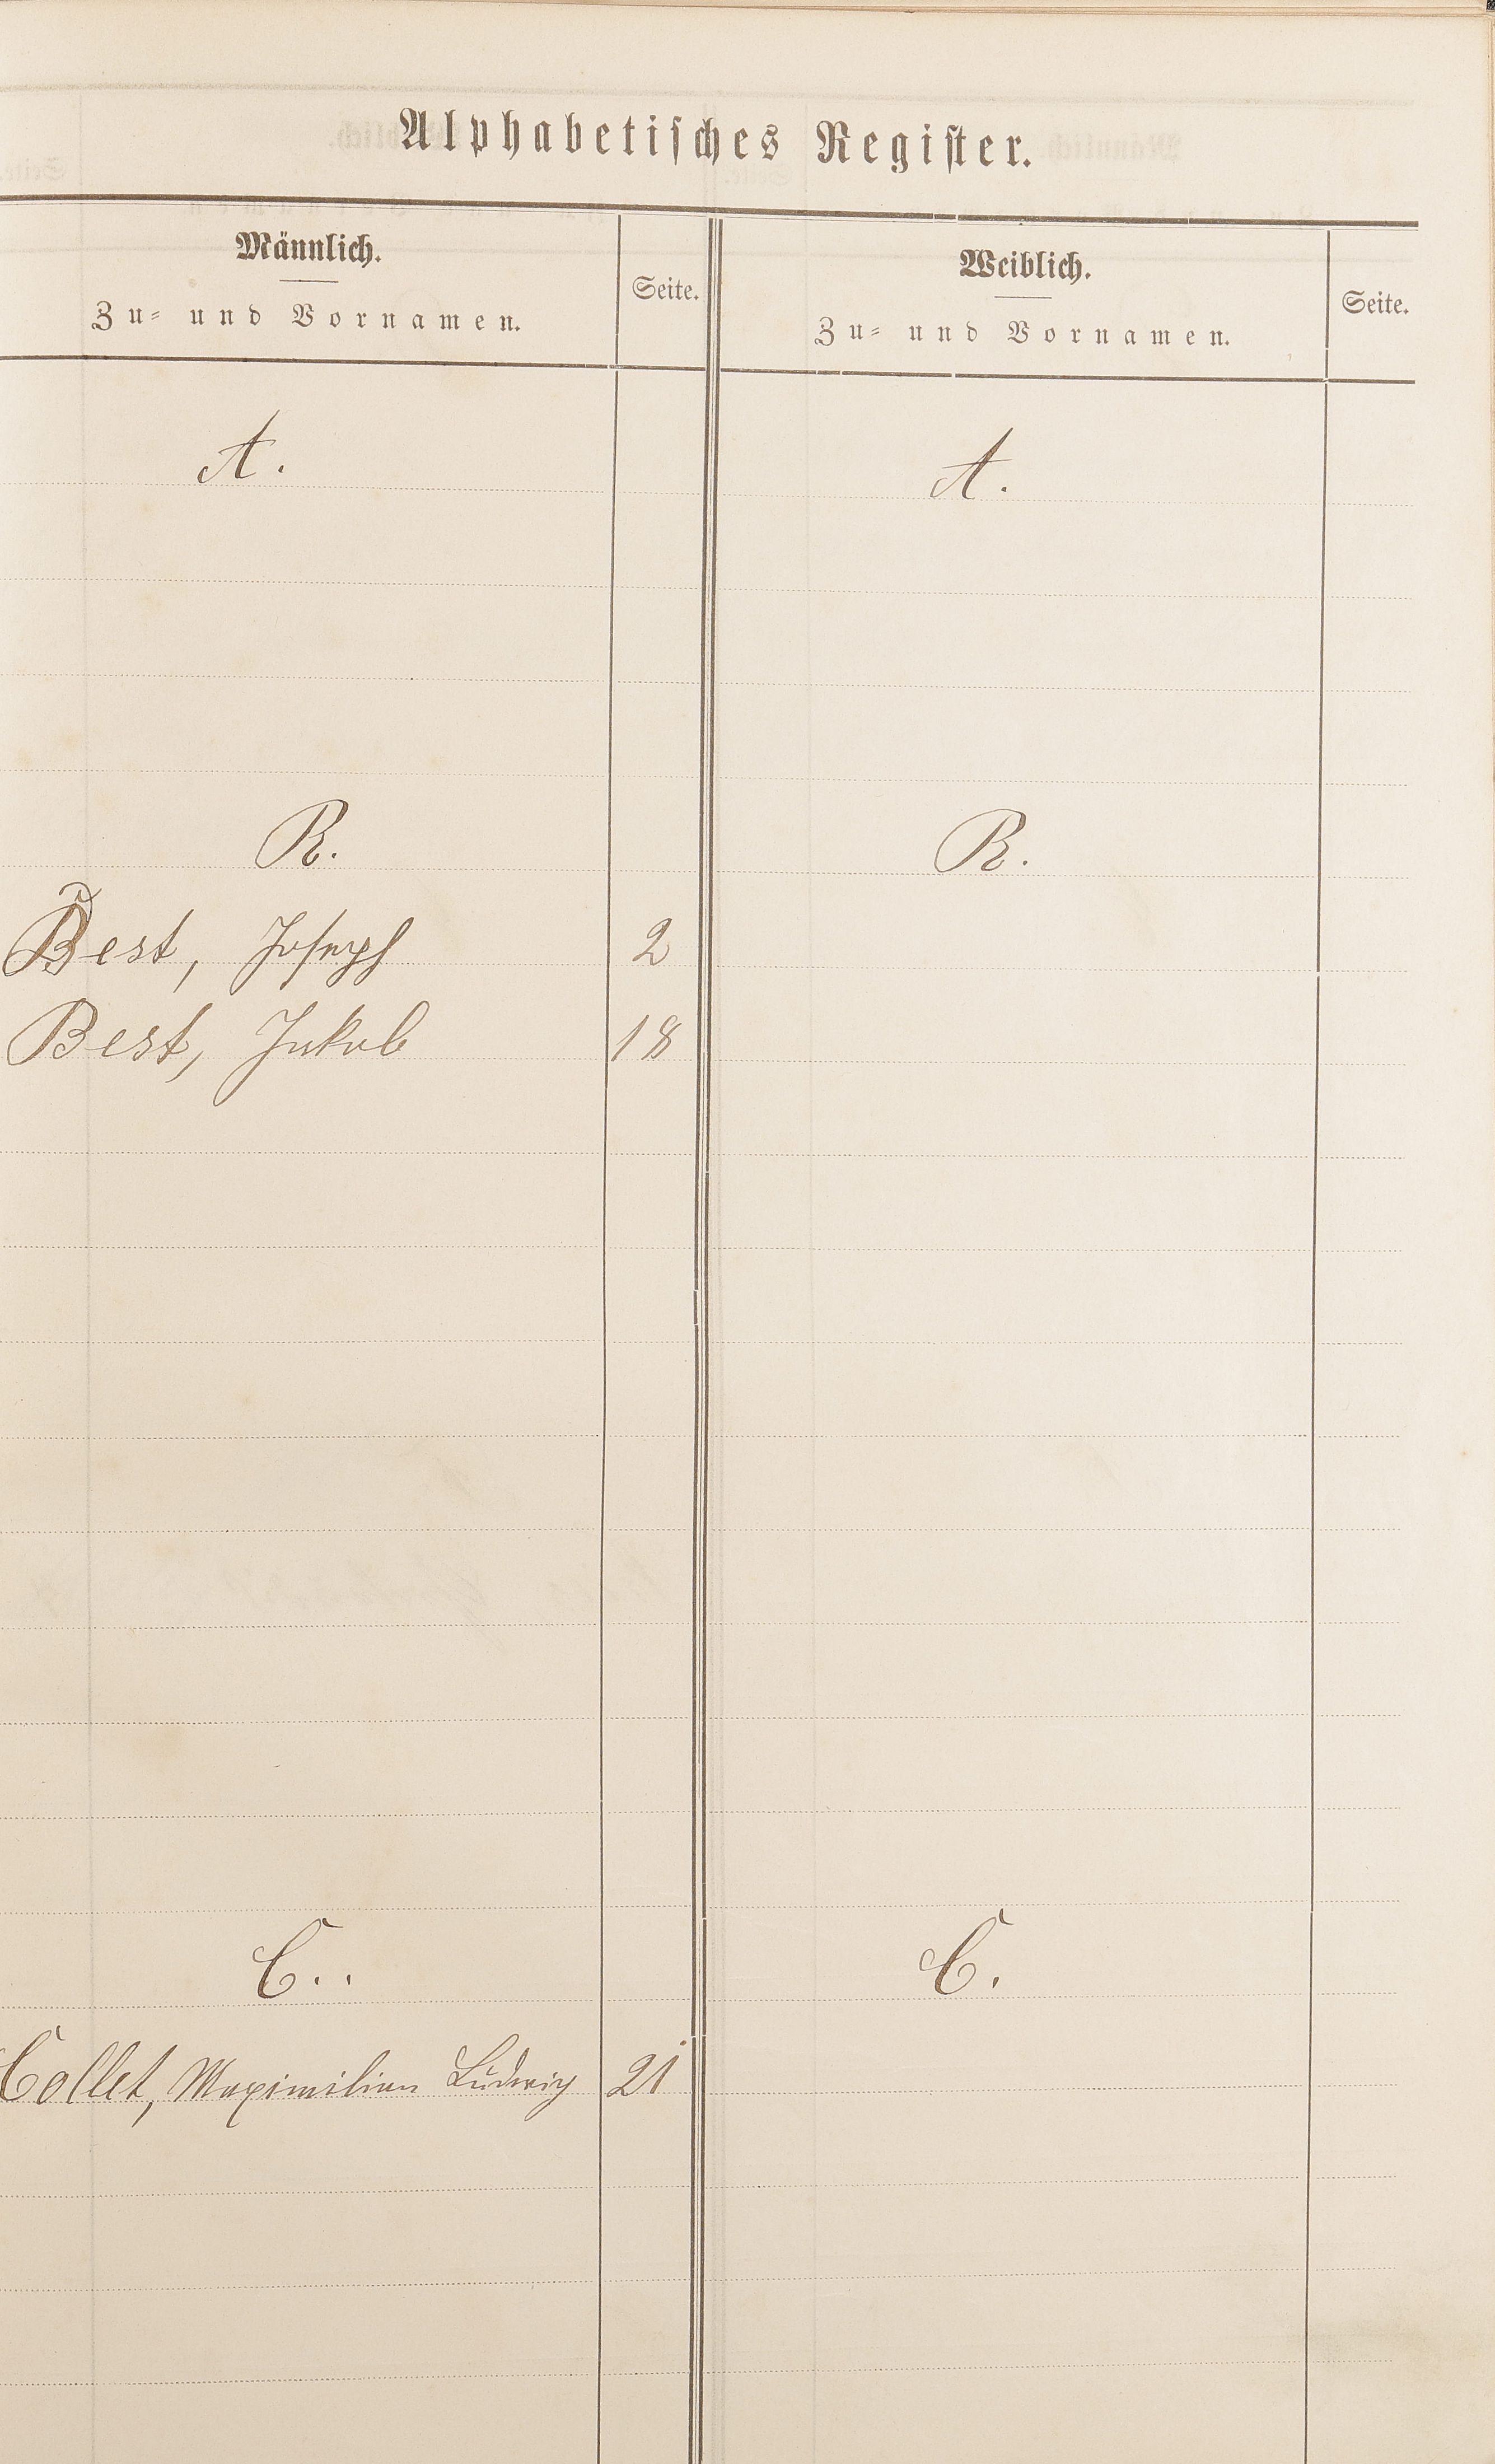 Alphabetisches Register.
Männlich.
Zu- und Vornamen.
Seite.
Weiblich.
Zu- und Vornamen.
Seite.
A.
A.
B.
B.
Best, Joseph 2
Best, Jakob 18
C..
C.
Collet, Maximilian Ludwig 21